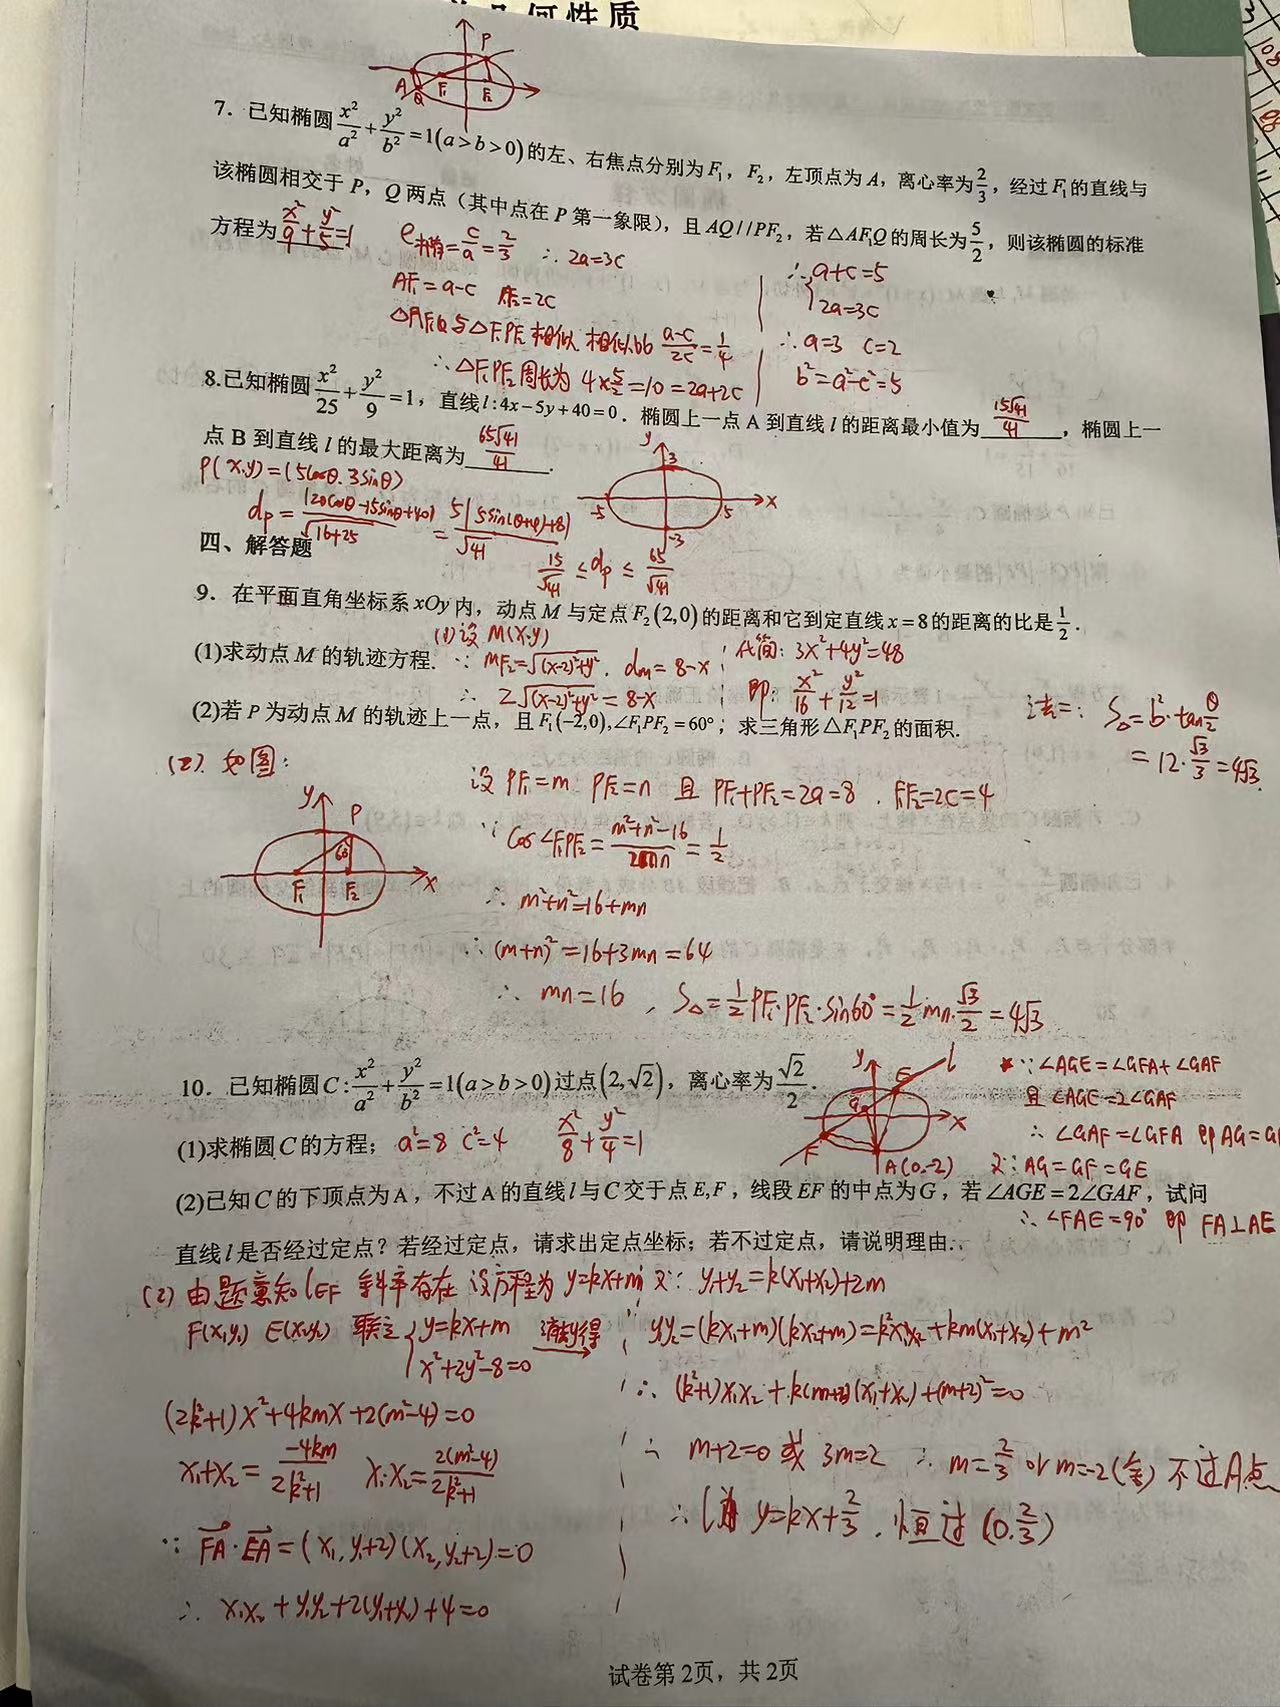 几何性质
P
A
Q
F₁
F₂
7. 已知椭圆x²/a²+y²/b²=1(a>b>0)的左、右焦点分别为F₁, F₂, 左顶点为A, 离心率为2/3, 经过F₁的直线与
该椭圆相交于P, Q两点（其中点在P第一象限），且AQ//PF₂, 若△AF₁Q的周长为5/2, 则该椭圆的标准
方程为x²/9+y²/5=1
e椭=c/a=2/3 ∴2a=3c
AF₁=a-c F₁F₂=2c
△AF₁Q与△F₁PF₂相似 相似比 (a-c)/2c=1/4
∴△F₁PF₂周长为 4×5/2=10=2a+2c
∴{a+c=5
2a=3c
∴a=3 c=2
b²=a²-c²=5
8.已知椭圆x²/25+y²/9=1, 直线l:4x-5y+40=0. 椭圆上一点A到直线l的距离最小值为15√41/41, 椭圆上一
点B到直线l的最大距离为65√41/41.
P(x,y)=(5cosθ,3sinθ)
dp=|20cosθ-15sinθ+40|/√(16+25)=5|5sin(θ+φ)+8|/√41
15/√41≤dp≤65/√41
y
3
-5
5
x
-3
四、解答题
9. 在平面直角坐标系xOy内，动点M与定点F₂(2,0)的距离和它到定直线x=8的距离的比是1/2.
(1)设 M(x,y)
(1)求动点M的轨迹方程.
∵ MF₂=√((x-2)²+y²), dm=8-x
∴ 2√((x-2)²+y²)=8-x
化简: 3x²+4y²=48
即: x²/16+y²/12=1
(2)若P为动点M的轨迹上一点，且F₁(-2,0),∠F₁PF₂=60°；求三角形△F₁PF₂的面积.
法二: S△=b²·tanθ/2
=12·√3/3=4√3
(2). 如图:
y
P
60°
F₁
F₂
x
设 PF₁=m PF₂=n 且 PF₁+PF₂=2a=8, F₁F₂=2c=4
∵ cos∠F₁PF₂=(m²+n²-16)/2mn=1/2
∴ m²+n²=16+mn
∴ (m+n)²=16+3mn=64
∴ mn=16, S△=1/2PF₁·PF₂·sin60°=1/2mn·√3/2=4√3
10. 已知椭圆C:x²/a²+y²/b²=1(a>b>0)过点(2,√2), 离心率为√2/2.
(1)求椭圆C的方程；a²=8 c²=4 x²/8+y²/4=1
y
l
E
G
x
F
A(0,-2)
∵∠AGE=∠GFA+∠GAF
且∠AGE=2∠GAF
∴∠GAF=∠GFA 即AG=G
又∵AG=GF=GE
(2)已知C的下顶点为A, 不过A的直线l与C交于点E,F, 线段EF的中点为G, 若∠AGE=2∠GAF, 试问
∴∠FAE=90° 即 FA⊥AE
直线l是否经过定点？若经过定点，请求出定点坐标；若不过定点，请说明理由.
(2) 由题意知lEF斜率存在 设方程为y=kx+m
F(x₁,y₁) E(x₂,y₂) 联立{y=kx+m
x²+2y²-8=0 消y得
(2k²+1)x²+4kmx+2(m²-4)=0
x₁+x₂=-4km/(2k²+1) x₁·x₂=2(m²-4)/(2k²+1)
∵ FA·EA=(x₁,y₁+2)(x₂,y₂+2)=0
∴ x₁x₂+y₁y₂+2(y₁+y₂)+4=0
又∵ y₁+y₂=k(x₁+x₂)+2m
y₁y₂=(kx₁+m)(kx₂+m)=k²x₁x₂+km(x₁+x₂)+m²
∴ (k²+1)x₁x₂+k(m+2)(x₁+x₂)+(m+2)²=0
∴ m+2=0或3m=2 ∴m=2/3 or m=-2(舍) 不过A点
∴ l为 y=kx+2/3, 恒过(0,2/3)
试卷第2页，共2页